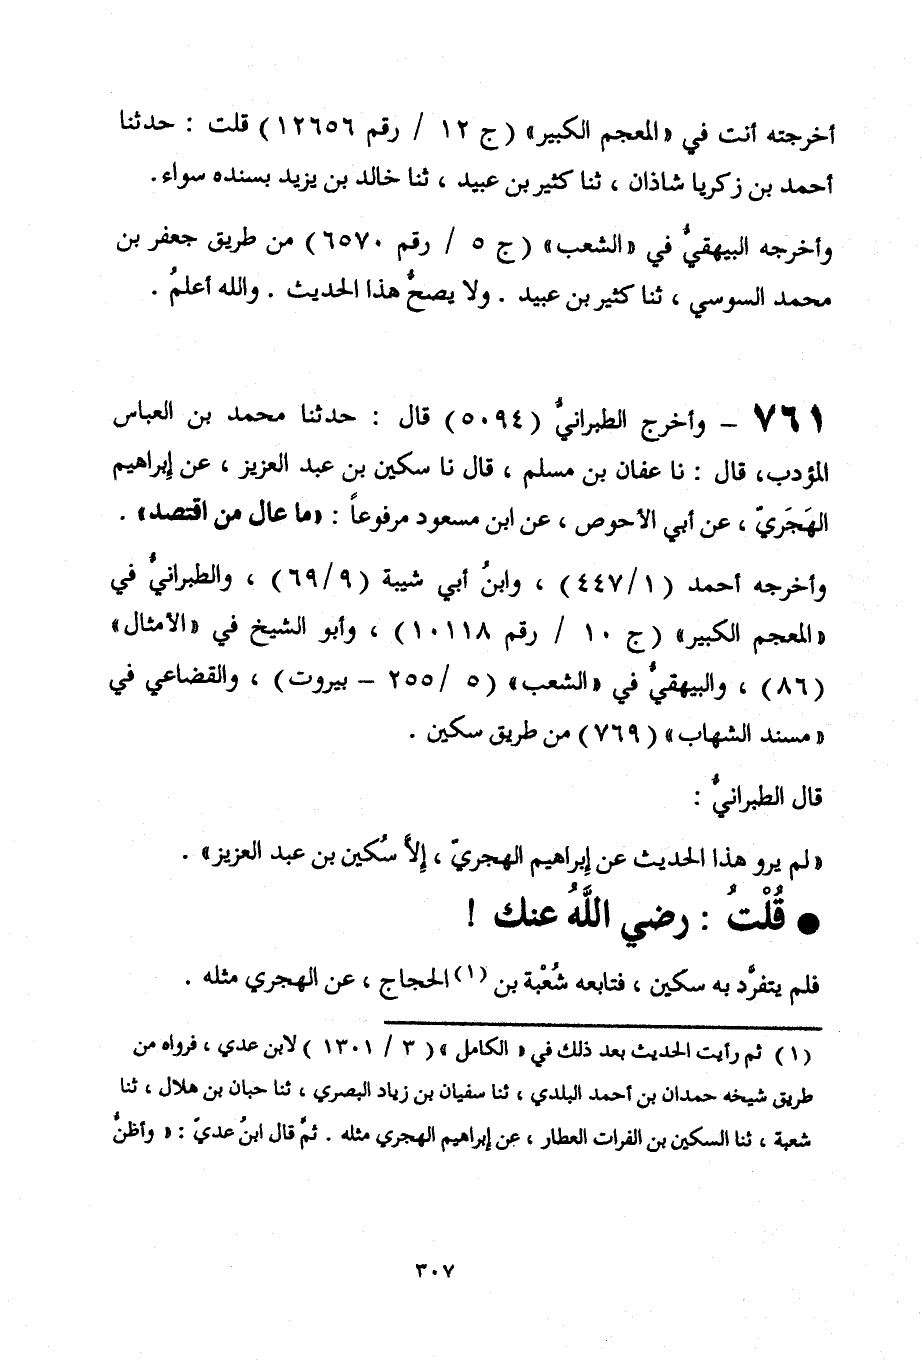 أخرجته أنت في «المعجم الكبير» (ج ١٢ / رقم ١٢٦٥٦) قلت : حدثنا
أحمد بن زكريا شاذان ، ثنا كثير بن عبيد ، ثنا خالد بن يزيد بسنده سواء.
وأخرجه البيهقيُّ في «الشعب» (ج ٥ / رقم ٦٥٧٠) من طريق جعفر بن
محمد السوسي ، ثنا كثير بن عبيد . ولا يصحُّ هذا الحديث . والله أعلمُ .
٧٦١ – وأخرج الطبرانيُّ (٥٠٩٤) قال : حدثنا محمد بن العباس
المؤدب، قال : نا عفان بن مسلم ، قال نا سكين بن عبد العزيز ، عن إبراهيم
الهَجَريّ ، عن أبي الأحوص ، عن ابن مسعود مرفوعاً : «ما عال من اقتصد» .
وأخرجه أحمد (٤٤٧/١) ، وابنُ أبي شيبة (٦٩/٩) ، والطبرانيُّ في
«المعجم الكبير» (ج ١٠ / رقم ١٠١١٨) ، وأبو الشيخ في «الأمثال»
(٨٦) ، والبيهقيُّ في «الشعب» (٥ /٢٥٥ – بيروت) ، والقضاعي في
«مسند الشهاب» (٧٦٩) من طريق سكين .
قال الطبرانيُّ :
«لم يرو هذا الحديث عن إبراهيم الهجريّ ، إلاَّ سُكين بن عبد العزيز» .
● قُلْتُ : رضي اللَّهُ عنك !
فلم يتفرَّد به سكين ، فتابعه شُعْبة بن (١) الحجاج ، عن الهجري مثله .
(١) ثم رأيت الحديث بعد ذلك في « الكامل » (٣ / ١٣٠١ ) لابن عدي ، فرواه من
طريق شيخه حمدان بن أحمد البلدي ، ثنا سفيان بن زياد البصري ، ثنا حبان بن هلال ، ثنا
شعبة ، ثنا السكين بن الفرات العطار ، عن إبراهيم الهجري مثله . ثمَّ قال ابنُ عديّ : « وأظنُّ
٣٠٧